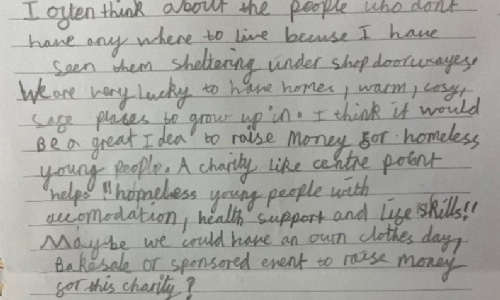 I often think about the people who dont
have any where to live becuse I have
seen them sheltering under shop doorwayes.
We are very lucky to have homes, warm, cosy,
safe places to grow up in. I think it would
Be a great Idea to raise money for homeless
young people. A charity like centre point
helps "homeless young people with
accomodation, health support and life skills!!
Maybe we could have an own clothes day,
Bakesale or sponsored event to raise money
for this charity?